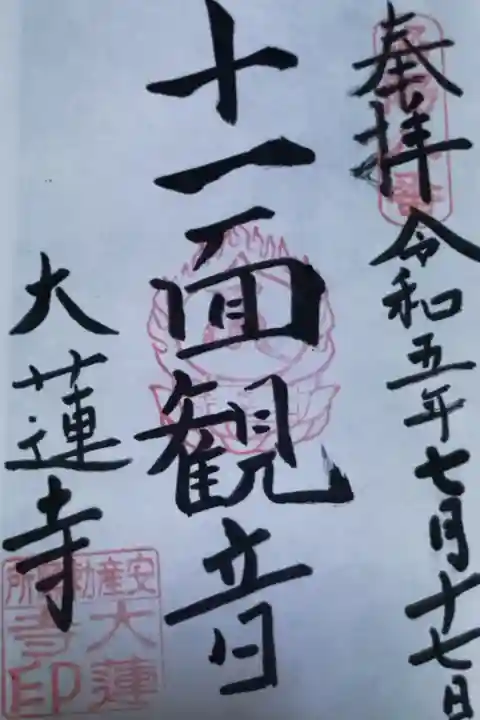 奉拝 令和五年七月十七日
十一面観音
大蓮寺
安産勅願所
大蓮
寺印